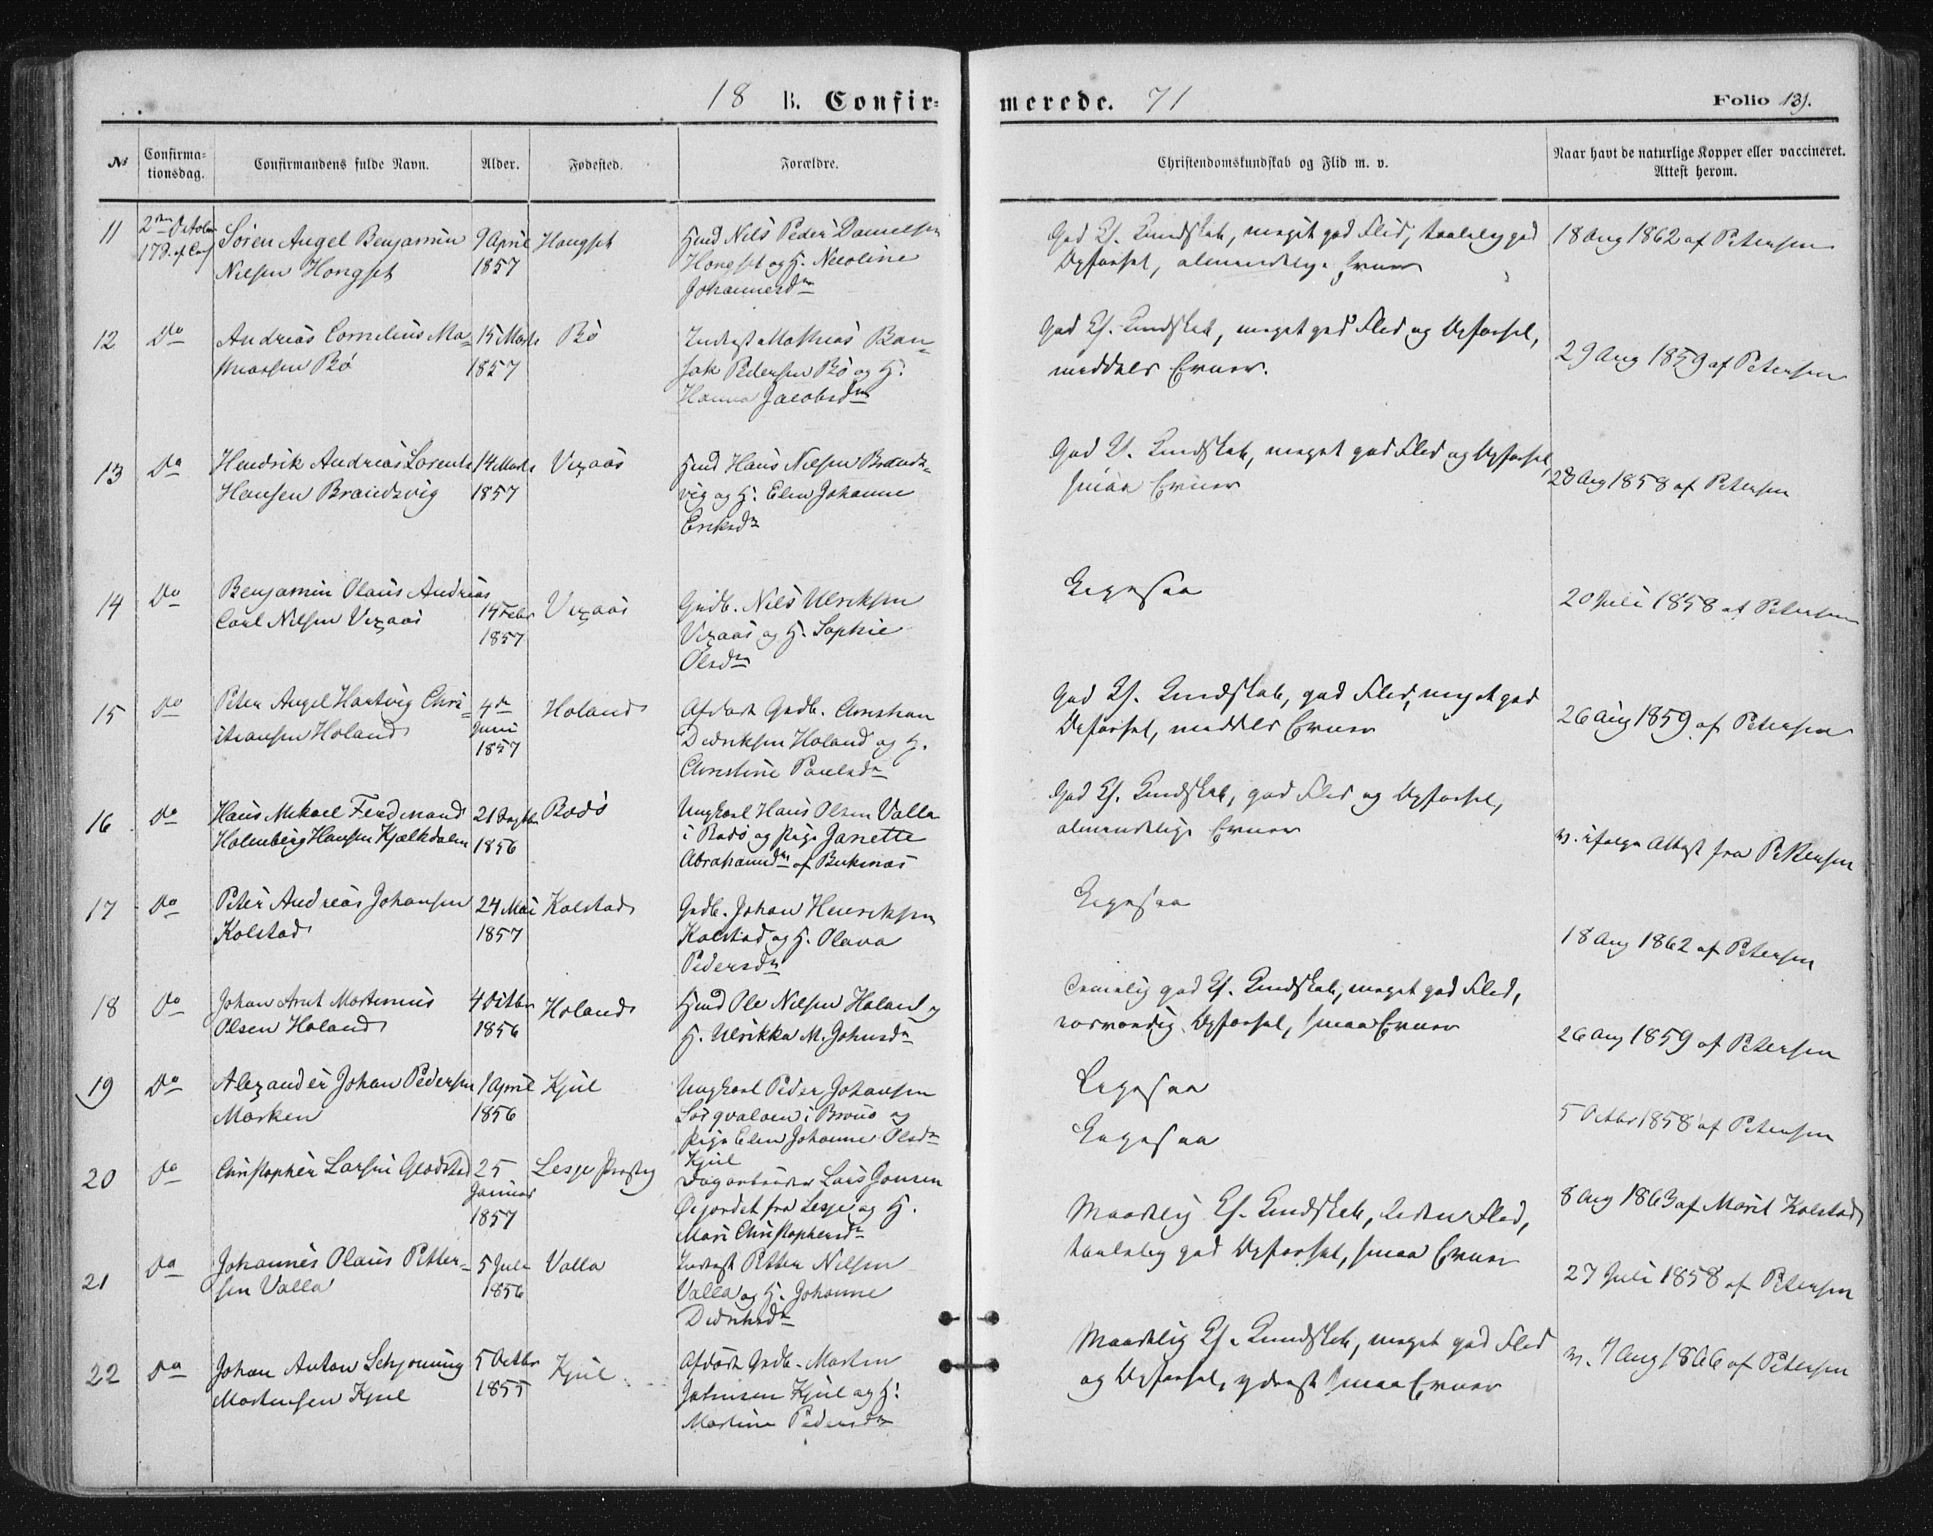 18 B. Confirmerede. 71
Folio 131.
No
Confirmationsdag.
Confirmandens fulde Navn.
Alder.
Fødested.
Forældre.
Christendomskundskab og Flid m. v.
Naar havt de naturlige Kopper eller vaccineret. Attest herom.
11
2den October
Søren Angel Benjamin
Nilsen Hongset
9 April
1857
Hongset
Hmd Nils Peder Danielsen
Hongset og H. Nicoline
Johannesdtr
God Ch. Kundskab, meget god Flid, taalelig god
Opførsel, almindelige Evner
18 Aug 1862 af Petersen
12
Do
Andreas Cornelius Ma-
thiassen Bø
15 Marts
1857
Bø
Inderst Mathias Ban-
Pedersen Bø og H.
Hanna Jacobsdtr
God Ch. Kundskab, meget god Flid og Opførsel,
middels Evner.
29 Aug 1859 af Petersen
13
Do
Hendrik Andreas Lorents
Hansen Brandsvig
14 Marts
1857
Vexaas
Hmd Hans Nilsen Brands-
vig og H. Elen Johanne
Eriksdtr
God Ch. Kundskab, meget god Flid og Opførsel,
smaa Evner
28 Aug 1858 af Petersen
14
Do
Benjamin Olaus Andreas
Carl Nilsen Vexaas
14 Febr
1857
Vexaas
Grdb. Nils Ulriksen
Vexaas og H. Sophie
Olsdtr
Ligesaa
20 Juli 1858 af Petersen
15
Do
Peter Angel Hartvig Chri-
stiansen Holand
4de
Juni
1857
Holand
Afdøde Grdb. Christian
Didriksen Holand og H.
Christine Paulsdtr
God Ch. Kundskab, god Flid, meget god
Opførsel, middels Evner
26 Aug 1859 af Petersen
16
Do
Hans Mikael Ferdinand
Holmberg Hansen Kjælkdalen
21 Septbr
1856
Bodø
Ungkarl Hans Olsen Valla
i Bodø og Pige Janette
Abrahamsdtr af
God Ch. Kundskab, god Flid og Opførsel,
almindelige Evner
v. ifølge Attest fra Pettersen
17
Do
Peter Andreas Johansen
Kolstad
24 Mai
1857
Kolstad
Grdb. Johan Henriksen
Kolstad og H. Olava
Pedersdtr
Ligesaa
18 Aug 1862 af Petersen
18
Do
Johan Arnt Mortinius
Olsen Holand
4 Octbr
1856
Holand
Hmd Ole Nilsen Holand og
H. Ulrikka M. Johnsdtr
Temmelig god Ch. Kundskab, meget god Flid,
rosværdig Opførsel, smaa Evner
26 Aug 1859 af Petersen
19
Do
Alexander Johan Pedersen
Marken
1 April
1856
Kjul
Ungkarl Peder Johansen
i Brønø og
Pige Elen Johanne Olsdtr
Kjul
Ligesaa
5 Octbr 1858 af Petersen
20
Do
Christopher Larsen Gladstad
25
Januar
1857
Lesje Præsteg
Dagarbeider Lars Jonsen
Øigordet fra Lesje og H.
Mari Christophersdtr
Ligesaa
8 Aug 1863 af Marit Kolstad
21
Do
Johannes Olaus Petter-
sen Valla
5 Juli
1856
Valla
Inderst Petter Nilsen
Valla og H. Johanne
Didriksdtr
Maadelig Ch. Kundskab, liden Flid,
taalelig god Opførsel, smaa Evner
27 Juli 1858 af Petersen
22
Do
Johan Anton Schjøning
Mortensen Kjul
5 Octbr
1855
Kjul
Afdøde Grdb. Morten
Johnsen Kjul og H.
Martine Pedersdtr
Maadelig Ch. Kundskab, meget god Flid
og Opførsel, yderst smaa Evner
v. 7 Aug 1866 af Petersen